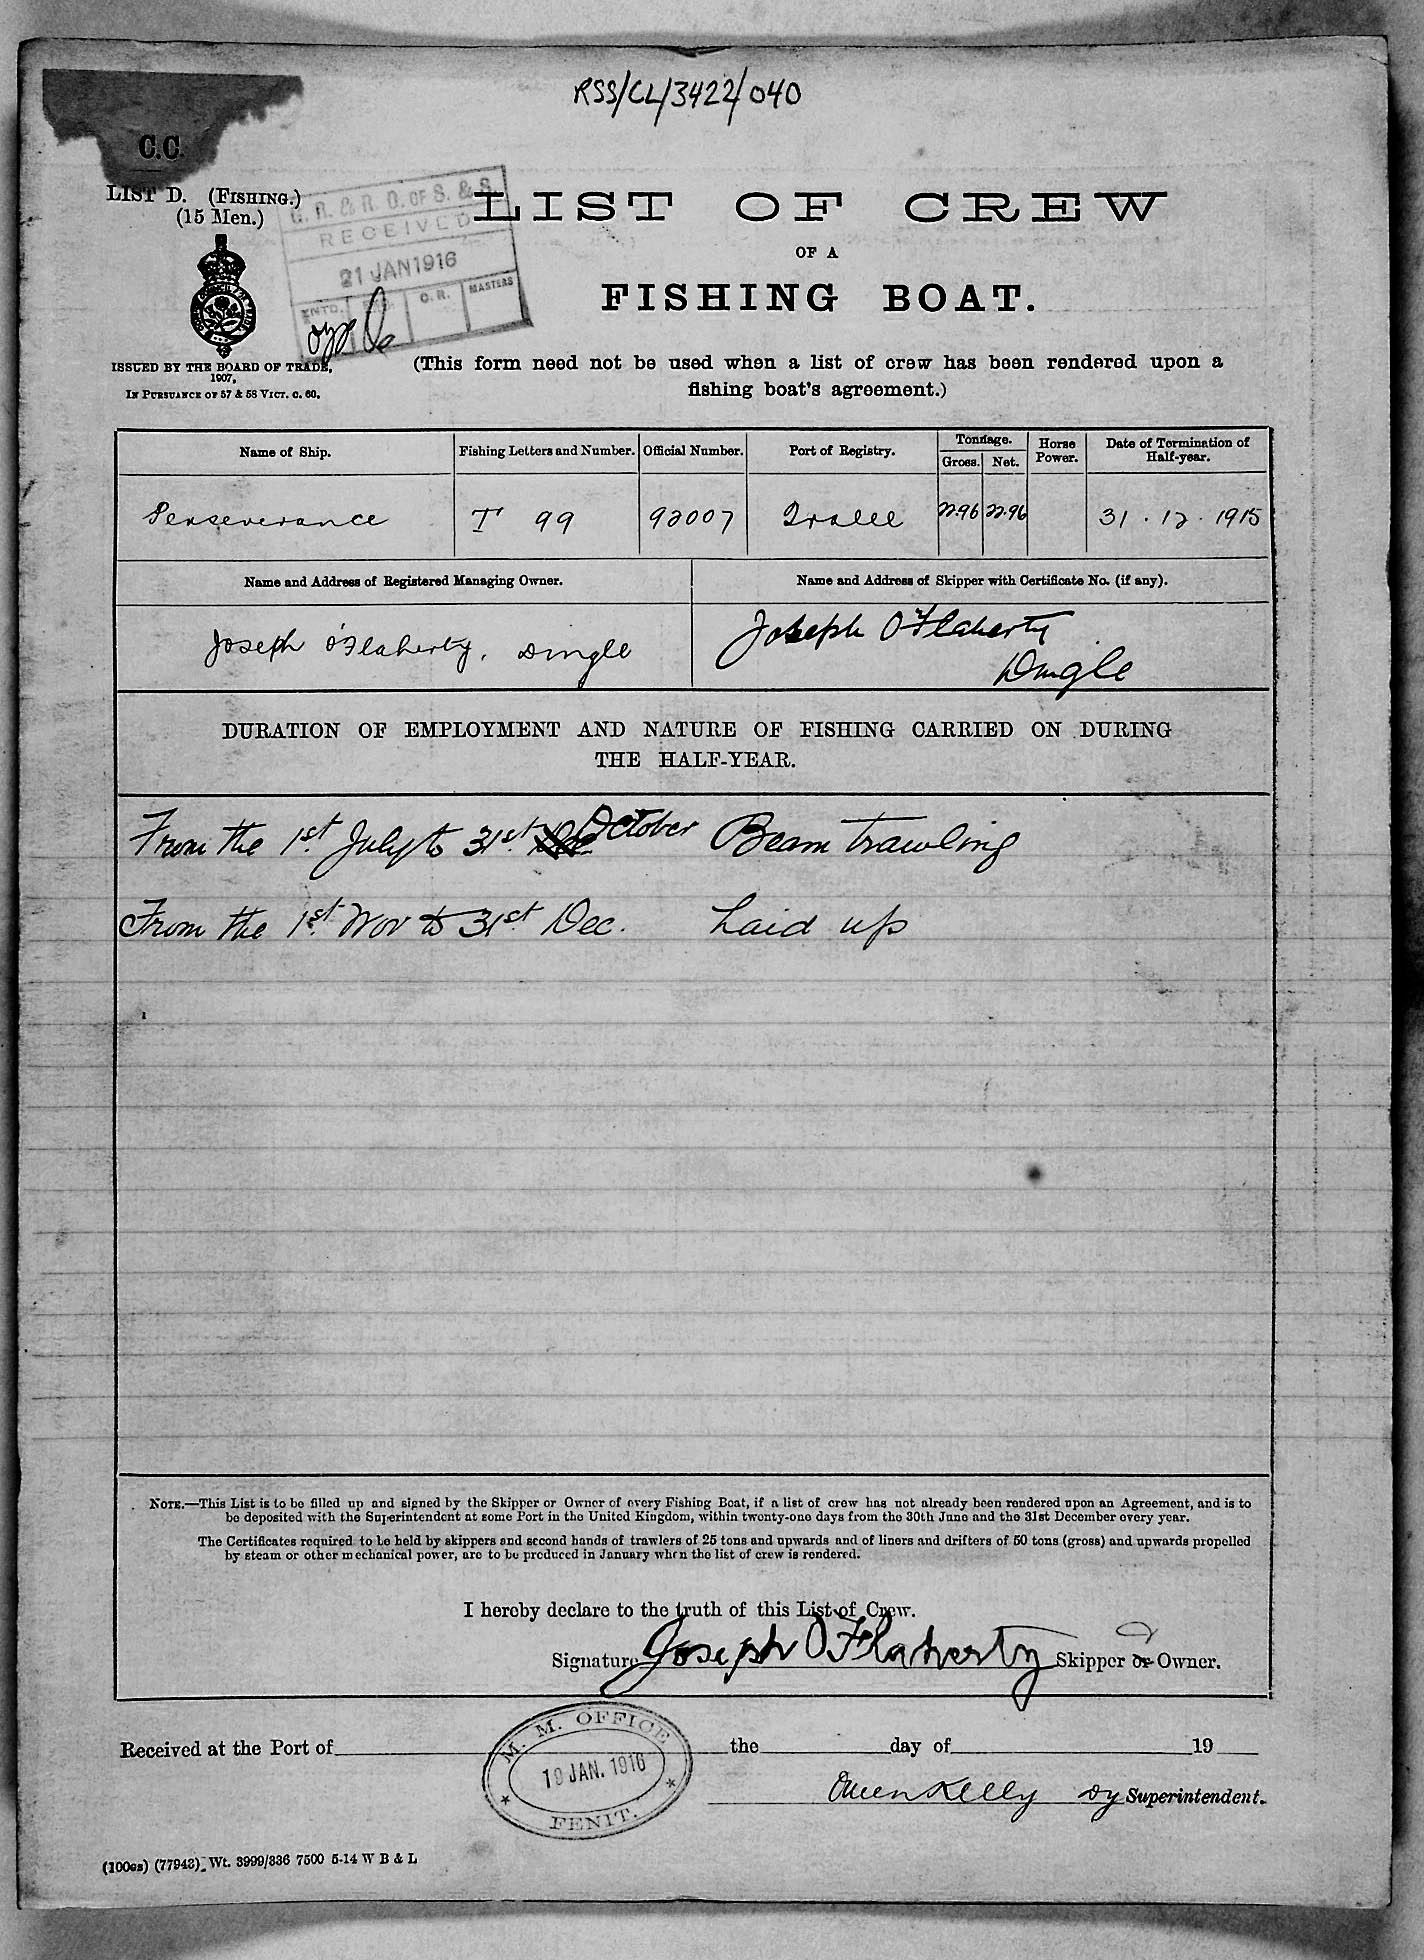 RSS/CL/3422/040
C.C.
LIST D. (FISHING.)
(15 Men.)
C. R. & R. O. OF S. & S.
RECEIVED
21 JAN 1916
ENTD.
C. R.
MASTERS
LIST OF CREW
OF A
FISHING BOAT.
ISSUED BY THE BOARD OF TRADE,
1907,
IN PURSUANCE OF 57 & 58 VICT. C. 60.
(This form need not be used when a list of crew has been rendered upon a
fishing boat's agreement.)
Name of Ship. Fishing Letters and Number. Official Number. Port of Registry. Tonnage. Horse Power. Date of Termination of Half-year.
Gross. Net.
Perseverance T 99 92007 Tralee 22.96 22.96 31.12.1915
Name and Address of Registered Managing Owner. Name and Address of Skipper with Certificate No. (if any).
Joseph O'Flaherty, Dingle Joseph O'Flaherty
Dingle
DURATION OF EMPLOYMENT AND NATURE OF FISHING CARRIED ON DURING
THE HALF-YEAR.
From the 1st July to 31st Dec October Beam trawling
From the 1st Nov to 31st Dec. Laid up
NOTE.—This List is to be filled up and signed by the Skipper or Owner of every Fishing Boat, if a list of crew has not already been rendered upon an Agreement, and is to
be deposited with the Superintendent at some Port in the United Kingdom, within twenty-one days from the 30th June and the 31st December every year.
The Certificates required to be held by skippers and second hands of trawlers of 25 tons and upwards and of liners and drifters of 50 tons (gross) and upwards propelled
by steam or other mechanical power, are to be produced in January when the list of crew is rendered.
I hereby declare to the truth of this List of Crew.
Signature Joseph O'Flaherty Skipper or Owner.
M. M. OFFICE
19 JAN. 1916
FENIT.
Received at the Port of the day of 19
Owen Kelly Dy Superintendent.
(100es) (77943) Wt. 3999/336 7500 5-14 W B & L